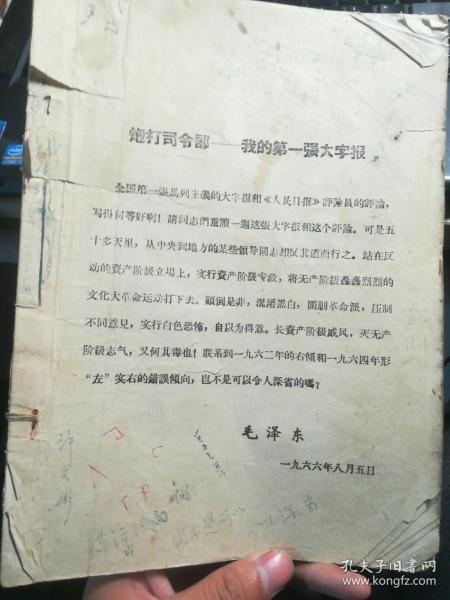 炮打司令部——我的第一張大字报
全国第一張馬列主義的大字报和《人民日报》評論員的評論，
写得何等好啊！請同志們重讀一遍这張大字报和这个評論。可是五
十多天里，从中央到地方的某些領导同志却反其道而行之。站在反
动的資产阶級立場上，实行資产阶級专政，将无产阶級轟轟烈烈的
文化大革命运动打下去。顛倒是非，混淆黑白，圍剿革命派，压制
不同意見，实行白色恐怖，自以为得意。长資产阶級威风，灭无产
阶級志气，又何其毒也！联系到一九六二年的右傾和一九六四年形
“左”实右的錯誤傾向，岂不是可以令人深省的嗎？
毛泽东
一九六六年八月五日
岂不是可以
孔夫子旧书网
www.kongfz.com